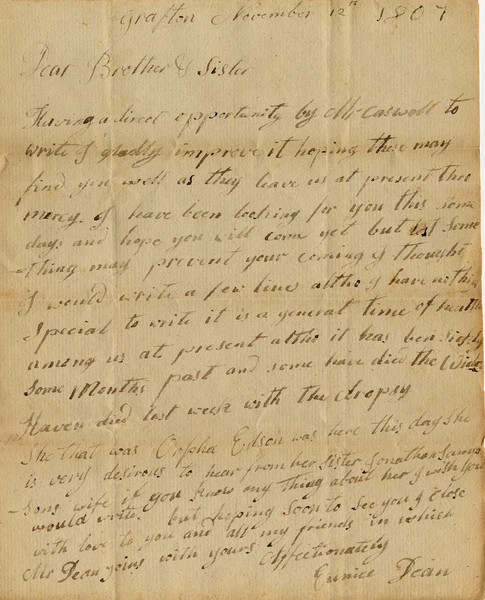 Grafton November 12th 1807
Dear Brother & Sister
Having a direct opportunity by Mr Caswall to
write I gladly improve it hoping these may
find you well as they leave us at present thro
mercy. I have been looking for you this some
days and hope you will com yet but lest some
-thing may prevent your coming I thought
I would write a few line altho I have nothing
special to write it is a general time of health
among us at present altho it has ben sickly
some Months past and some have died the Widow
Haven died last week with the dropsy
She that was Orpha Edson was here this day she
is very desirous to hear from her sister Jonathan
-sons wife if you know any thing about her I wish you
would write. but hoping soon to see you I close
with love to you and all my friends in which
Mr Dean joins with yours Affectionately
Eunice Dean